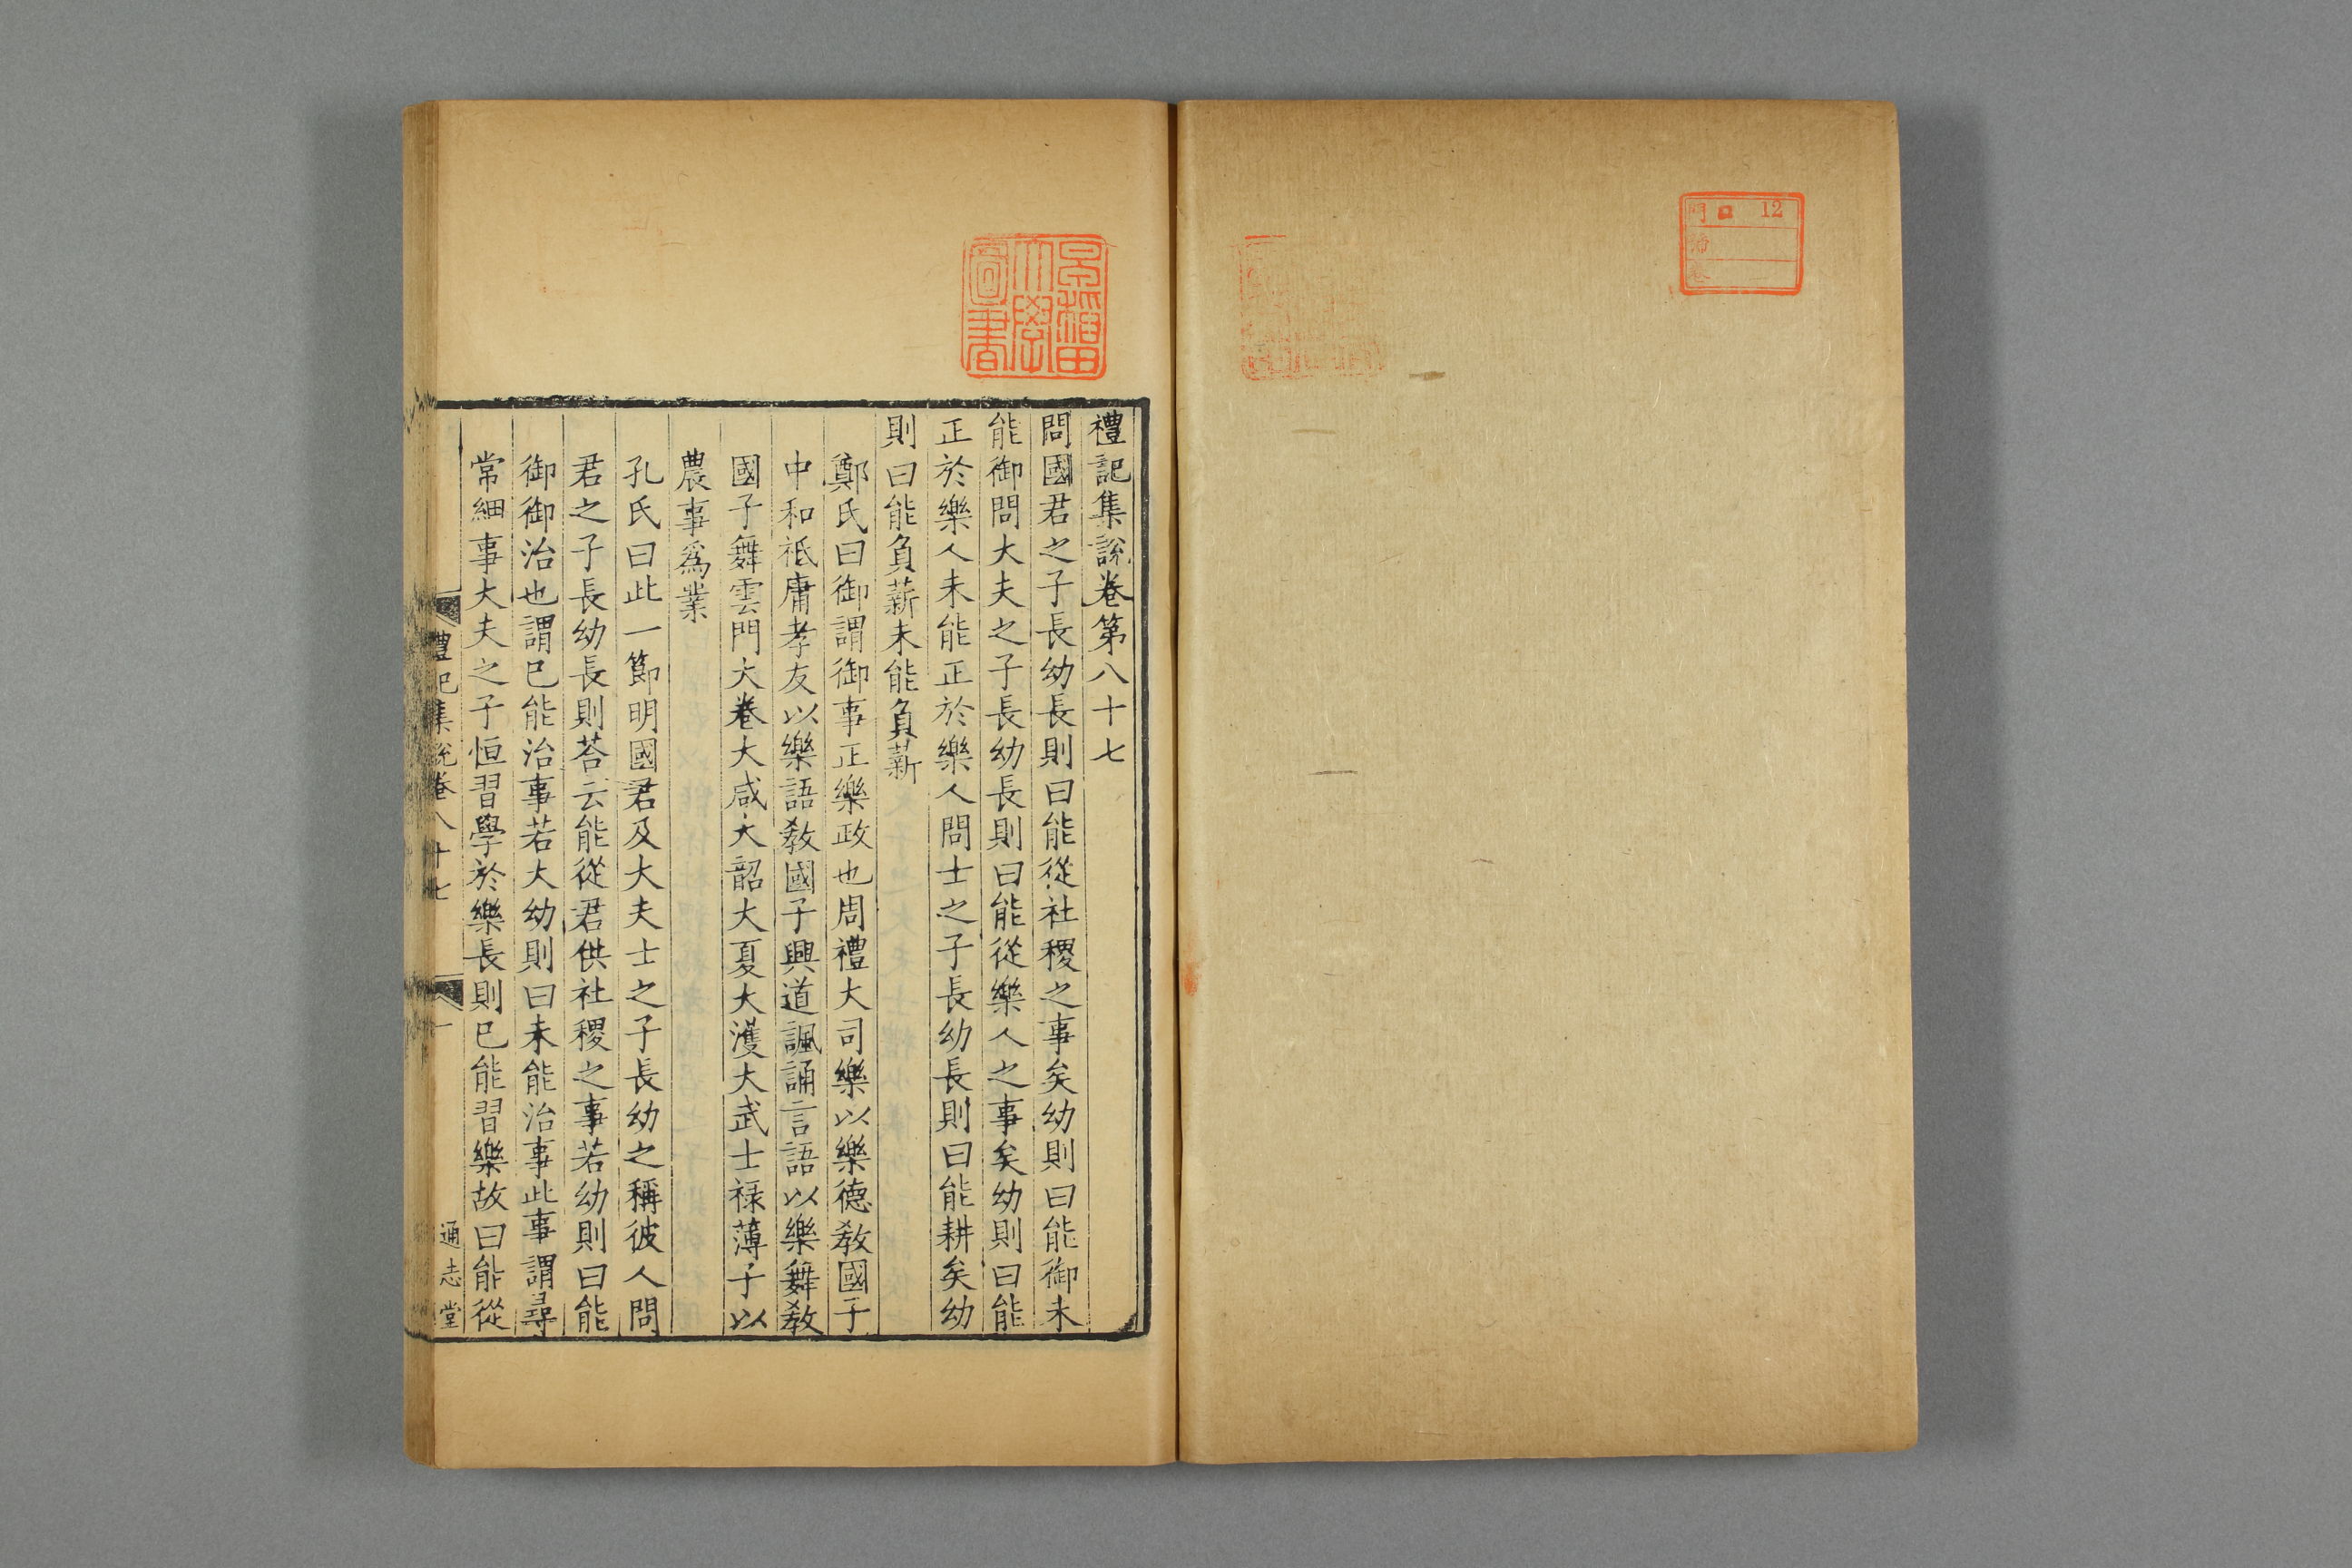 門 ロ 12
早稲田
大學
圖書
禮記集說卷第八十七
問國君之子長幼長則曰能從社稷之事矣幼則曰能御未
能御問大夫之子長幼長則曰能從樂人之事矣幼則曰能
正於樂人未能正於樂人問士之子長幼長則曰能耕矣幼
則曰能負薪未能負薪
鄭氏曰御謂御事正樂政也周禮大司樂以樂德敎國子
中和祗庸孝友以樂語敎國子興道諷誦言語以樂舞敎
國子舞雲門大卷大咸大韶大夏大濩大武士禄薄子以
農事爲業
孔氏曰此一節明國君及大夫士之子長幼之稱彼人問
君之子長幼長則荅云能從君供社稷之事若幼則曰能
御御治也謂已能治事若大幼則曰未能治事此事謂尋
常細事大夫之子恒習學於樂長則已能習樂故曰能從
禮記集說卷八十七 一 通志堂